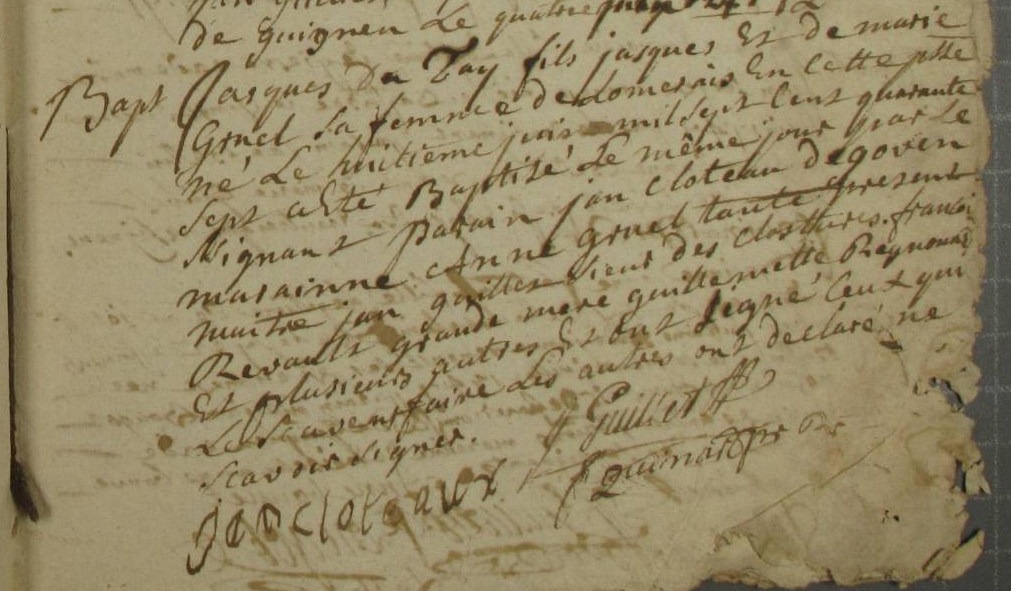 de guignen Le quatre
Bapt Jasques Du Tay fils jasques Et de marie
Gruel sa femme de domerais En Cette psse
né Le huitieme juin mil sept Cent quarante
sept a Eté Baptisé Le même jour par Le
Signant parain jan Cloteau de goven
marainne Anne gruel tante present
maitre jan guillet sieur des Clostures françoi
Revault grande mere guillemette Reynouard
Et plusieurs autres Et ont signé Ceux qui
Le scavent faire Les autres ont declaré ne
scavoir signer.
Guillet
jan cloteaux